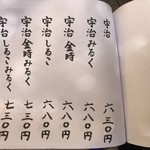 宇治 六三〇円
宇治みるく 六八〇円
宇治金時 六八〇円
宇治しるこ 六八〇円
宇治金時みるく 七三〇円
宇治しるこみるく 七三〇円